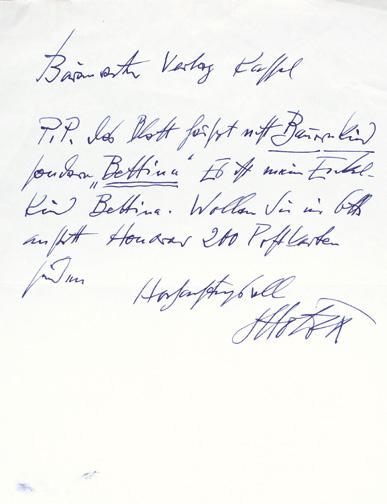 Bärenreiter Verlag Kassel
P.P. das Blatt heißt nicht Bauernkind
sondern „Bettina“ Es ist mein Enkel-
kind Bettina. Wollen Sie mir bitte
anstatt Honorar 200 Postkarten
senden
Hochachtungsvoll